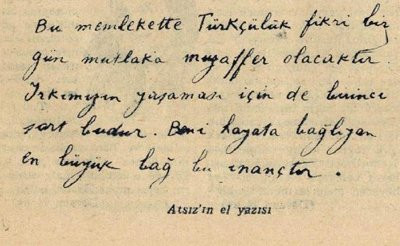 Bu memlekette Türkçülük fikri bir
gün mutlaka muzaffer olacaktır.
Irkımızın yaşaması için de birinci
şart budur. Beni hayata bağlıyan
en büyük bağ bu inançtır.
Atsız'ın el yazısı